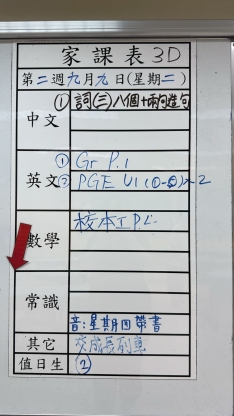 家課表3D
第二週九月九日(星期二)
中文
① 詞(三)八個+兩句造句
英文
① Gr P.1
② PGE U1 (0-5)~2
數學
校本工P.1-
常識
音:星期四帶書
其它
交成長列車
值日生
②